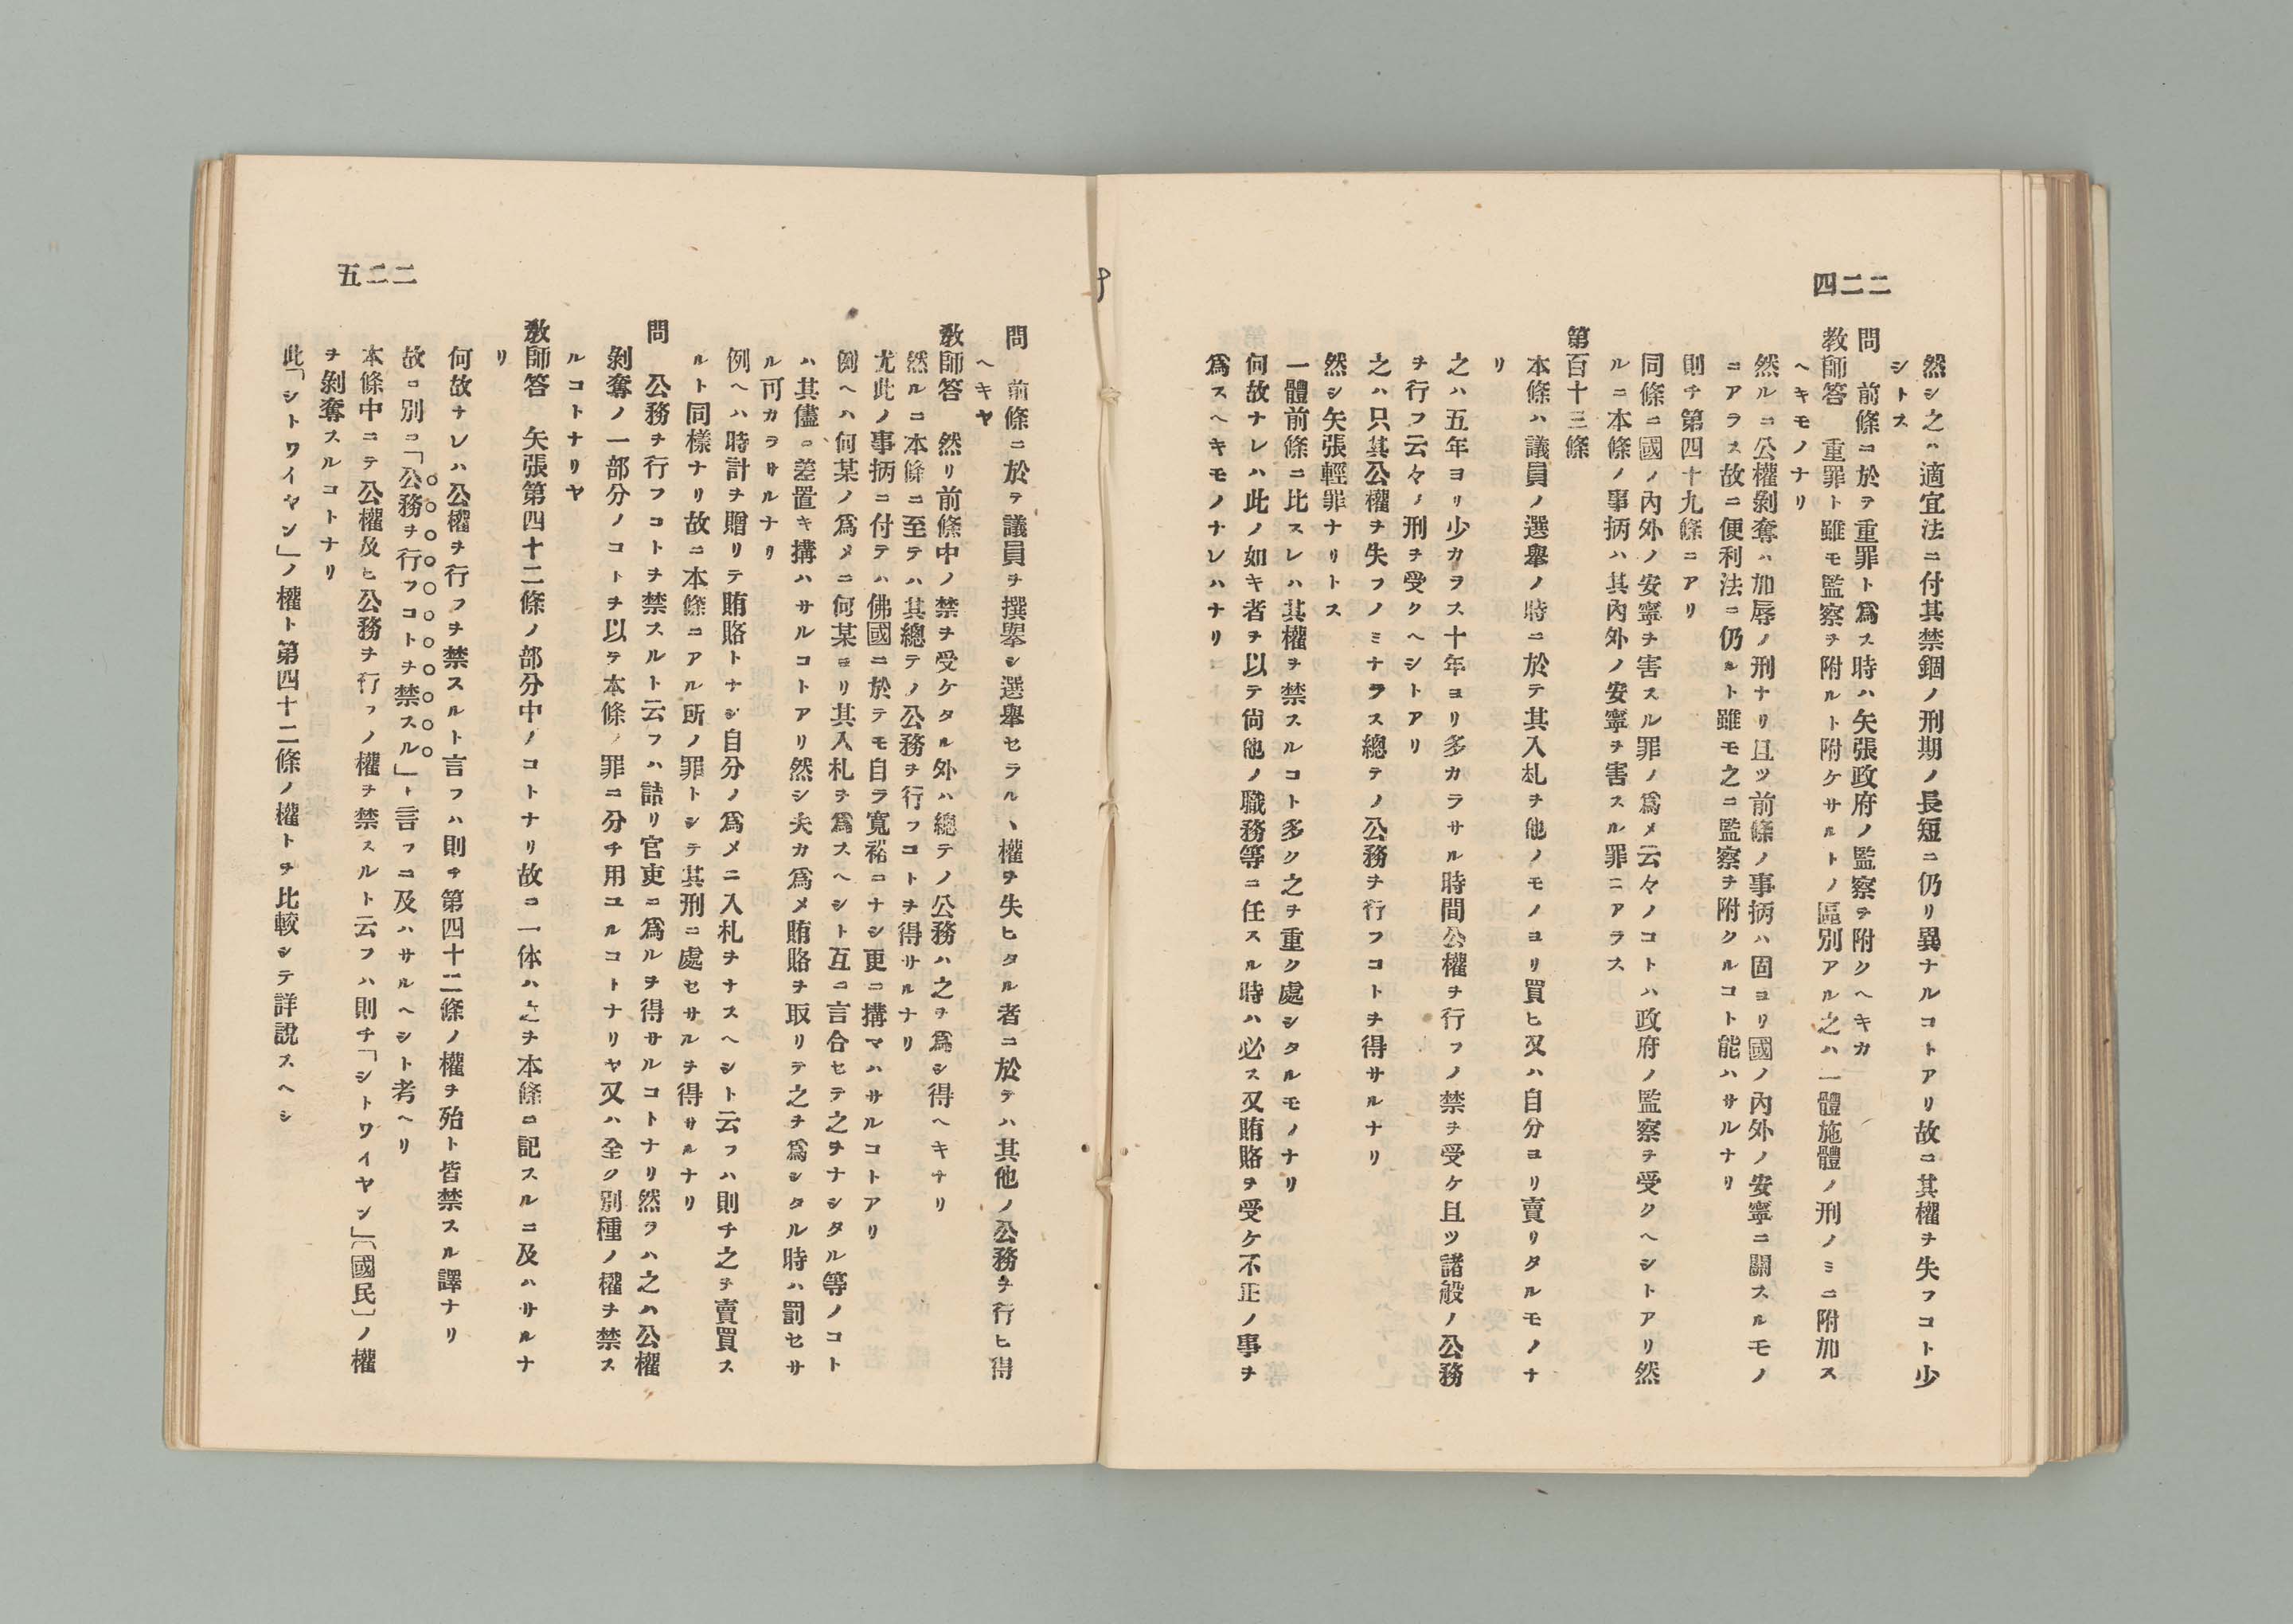 二二四
然シ之ハ適宜法ニ付其禁錮ノ刑期ノ長短ニ仍リ異ナルコトアリ故ニ其權ヲ失フコト少
シトス
問　前條ニ於テ重罪ト爲ス時ハ矢張政府ノ監察ヲ附クヘキカ
教師答　重罪ト雖モ監察ヲ附ルト附ケサルトノ區別アル之ハ一體施體ノ刑ノミニ附加ス
ヘキモノナリ
然ルニ公權剝奪ハ加辱ノ刑ナリ且ツ前條ノ事柄ハ固ヨリ國ノ內外ノ安寧ニ關スルモノ
ニアラス故ニ便利法ニ仍ルト雖モ之ニ監察ヲ附クルコト能ハサルナリ
則チ第四十九條ニアリ
同條ニ國ノ內外ノ安寧ヲ害スル罪ノ爲メ云々ノコトハ政府ノ監察ヲ受クヘシトアリ然
ルニ本條ノ事柄ハ其內外ノ安寧ヲ害スル罪ニアラス
第百十三條
本條ハ議員ノ選擧ノ時ニ於テ其入札ヲ他ノモノヨリ買ヒ又ハ自分ヨリ賣リタルモノナ
リ
之ハ五年ヨリ少カラス十年ヨリ多カラサル時間公權ヲ行フノ禁ヲ受ケ且ツ諸般ノ公務
ヲ行フ云々ノ刑ヲ受クヘシトアリ
之ハ只其公權ヲ失フノミナラス總テノ公務ヲ行フコトヲ得サルナリ
然シ矢張輕罪ナリトス
一體前條ニ比スレハ其權ヲ禁スルコト多ク之ヲ重ク處シタルモノナリ
何故ナレハ此ノ如キ者ヲ以テ尙他ノ職務等ニ任スル時ハ必ス又賄賂ヲ受ケ不正ノ事ヲ
爲スヘキモノナレハナリ
二二五
問　前條ニ於テ議員ヲ撰擧シ選擧セラルヽ權ヲ失ヒタル者ニ於テハ其他ノ公務ヲ行ヒ得
ヘキヤ
教師答　然リ前條中ノ禁ヲ受ケタル外ハ總テノ公務ハ之ヲ爲シ得ヘキナリ
然ルニ本條ニ至テハ其總テノ公務ヲ行フコトヲ得サルナリ
尤此ノ事柄ニ付テハ佛國ニ於テモ自ラ寬裕ニナシ更ニ搆マハサルコトアリ
例ヘハ何某ノ爲メニ何某ヨリ其入札ヲ爲スヘシト互ニ言合セテ之ヲナシタル等ノコト
ハ其儘ニ差置キ搆ハサルコトアリ然シ夫カ爲メ賄賂ヲ取リテ之ヲ爲シタル時ハ罰セサ
ル可カラサルナリ
例ヘハ時計ヲ贈リテ賄賂トナシ自分ノ爲メニ入札ヲナスヘシト云フハ則チ之ヲ賣買ス
ルト同樣ナリ故ニ本條ニアル所ノ罪トシテ其刑ニ處セサルヲ得サルナリ
問　公務ヲ行フコトヲ禁スルト云フハ詰リ官吏ニ爲ルヲ得サルコトナリ然ラハ之ハ公權
剝奪ノ一部分ノコトヲ以テ本條ノ罪ニ分チ用ユルコトナリヤ又ハ全ク別種ノ權ヲ禁ス
ルコトナリヤ
教師答　矢張第四十二條ノ部分中ノコトナリ故ニ一体ハ之ヲ本條ニ記スルニ及ハサルナ
リ
何故ナレハ公權ヲ行フヲ禁スルト言フハ則チ第四十二條ノ權ヲ殆ト皆禁スル譯ナリ
故ニ別ニ「公務ヲ行フコトヲ禁スル」ト言フニ及ハサルヘシト考ヘリ
本條中ニテ公權及ヒ公務ヲ行フノ權ヲ禁スルト云フハ則チ「シトワイヤン」〔國民〕ノ權
ヲ剝奪スルコトナリ
此「シトワイヤン」ノ權ト第四十二條ノ權トヲ比較シテ詳說スヘシ